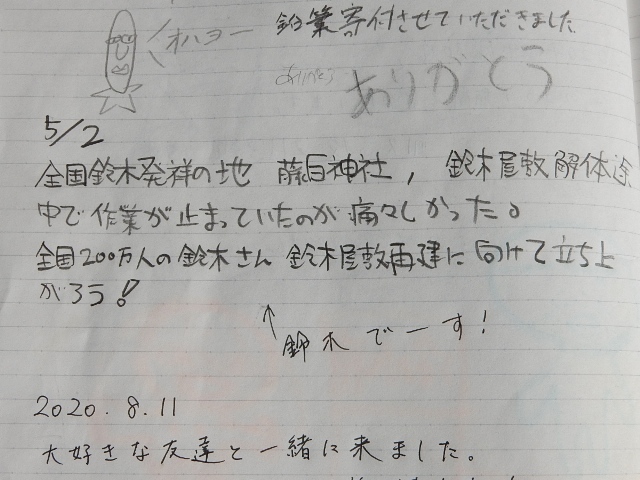 オハヨー
鉛筆寄付させていただきました
ありがとう
ありがとう
5/2
全国鈴木発祥の地 藤白神社, 鈴木屋敷解体途
中で作業が止まっていたのが痛々しかった。
全国200万人の鈴木さん 鈴木屋敷再建に向けて立ち上
がろう!
↑鈴木でーす!
2020.8.11
大好きな友達と一緒に来ました。